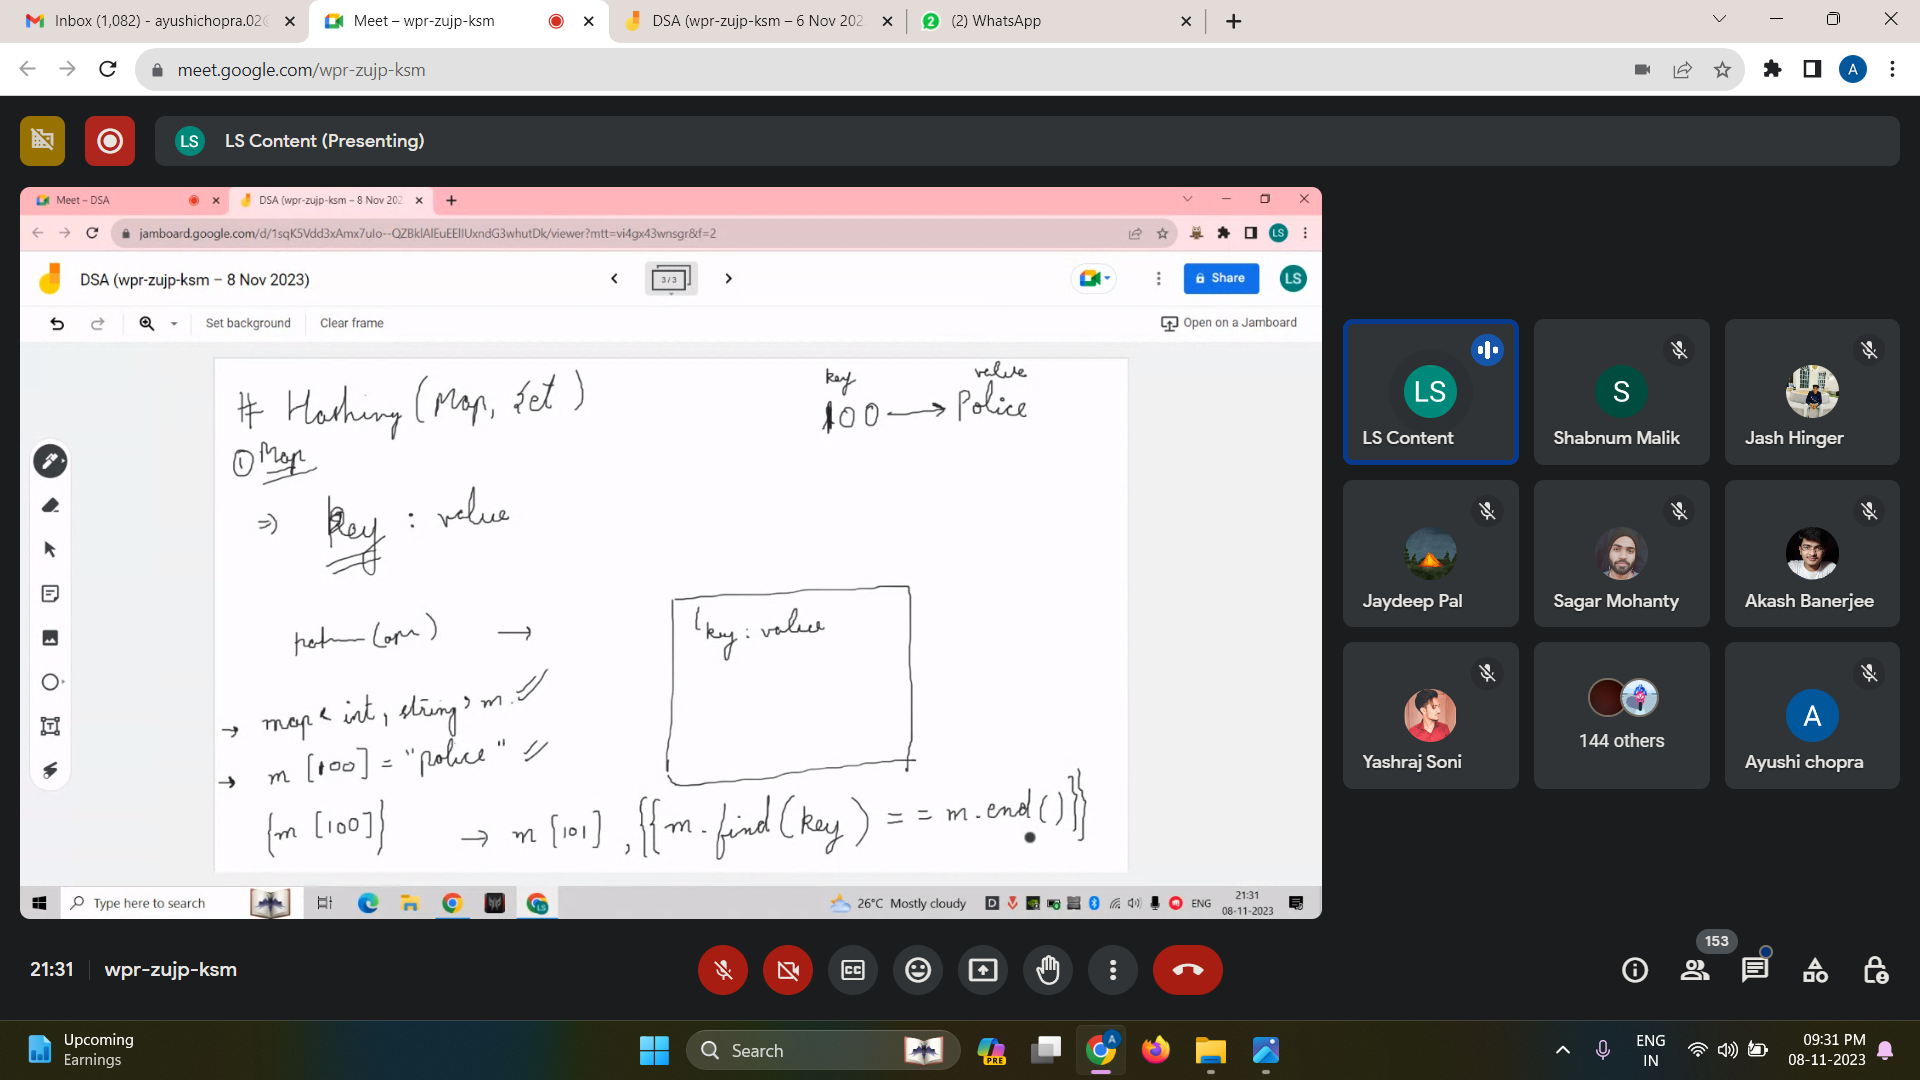 Inbox (1,082) - ayushichopra.02@
Meet – wpr-zujp-ksm
DSA (wpr-zujp-ksm – 6 Nov 202
2
(2) WhatsApp
meet.google.com/wpr-zujp-ksm
A
LS
LS Content (Presenting)
Meet – DSA
DSA (wpr-zujp-ksm – 8 Nov 202
LS
DSA (wpr-zujp-ksm – 8 Nov 2023)
3/3
Share
LS
Set background
Clear frame
Open on a Jamboard
# Hashing (Map, Set)
key value
100 → Police
① Map
⇒ key : value
key : value
→ map < int, string > m.
→ m [100] = "police"
{m [100]} → m [101] , {{m.find(key) == m.end()}}
Type here to search
26°C Mostly cloudy
D
ENG
21:31
08-11-2023
LS
LS Content
S
Shabnum Malik
Jash Hinger
Jaydeep Pal
Sagar Mohanty
Akash Banerjee
Yashraj Soni
144 others
A
Ayushi chopra
21:31
wpr-zujp-ksm
CC
153
Upcoming
Earnings
Search
PRE
A
ENG
IN
09:31 PM
08-11-2023